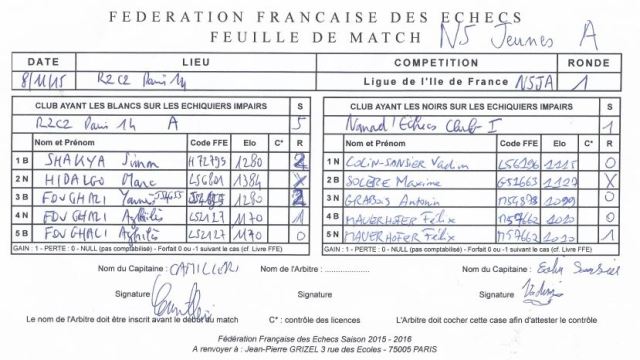 FEDERATION FRANCAISE DES ECHECS
FEUILLE DE MATCH N5 Jeunes A
DATE LIEU COMPETITION RONDE
8/11/15 R2C2 Paris 14 Ligue de l'Ile de France N5JA 1
CLUB AYANT LES BLANCS SUR LES ECHIQUIERS IMPAIRS S CLUB AYANT LES NOIRS SUR LES ECHIQUIERS IMPAIRS S
R2C2 Paris 14 A 5 Echecs Club I 1
Nom et Prénom Code FFE Elo C* R Nom et Prénom Code FFE Elo C* R
1 B SHAKYA Simon H72795 1280 2 1 N COLIN-SANSIER Vadim L56196 1115 0
2 N HIDALGO Marc L56801 1384 X 2 B SOLERE Maxime G51663 1129 X
3 B FOUGHALI 1280 2 3 N Antonin 1099 0
4 N FOUGHALI L52127 1170 1 4 B MAUERHOFER Félix N57662 1010 0
5 B FOUGHALI L52127 1170 0 5 N MAUERHOFER Félix N57662 1010 1
GAIN : 1 - PERTE : 0 - NULL (pas comptabilisé) - Forfait 0 ou -1 suivant le cas (cf. Livre FFE) GAIN : 1 - PERTE : 0 - NULL (pas comptabilisé) - Forfait 0 ou -1 suivant le cas (cf. Livre FFE)
Nom du Capitaine : CAMILLERI Nom de l'Arbitre : .................. Nom du Capitaine :
Signature Signature Signature
Le nom de l'Arbitre doit être inscrit avant le début du match C* : contrôle des licences L'Arbitre doit cocher cette case afin d'attester le contrôle
Fédération Française des Echecs Saison 2015 - 2016
A renvoyer à : Jean-Pierre GRIZEL 3 rue des Ecoles - 75005 PARIS